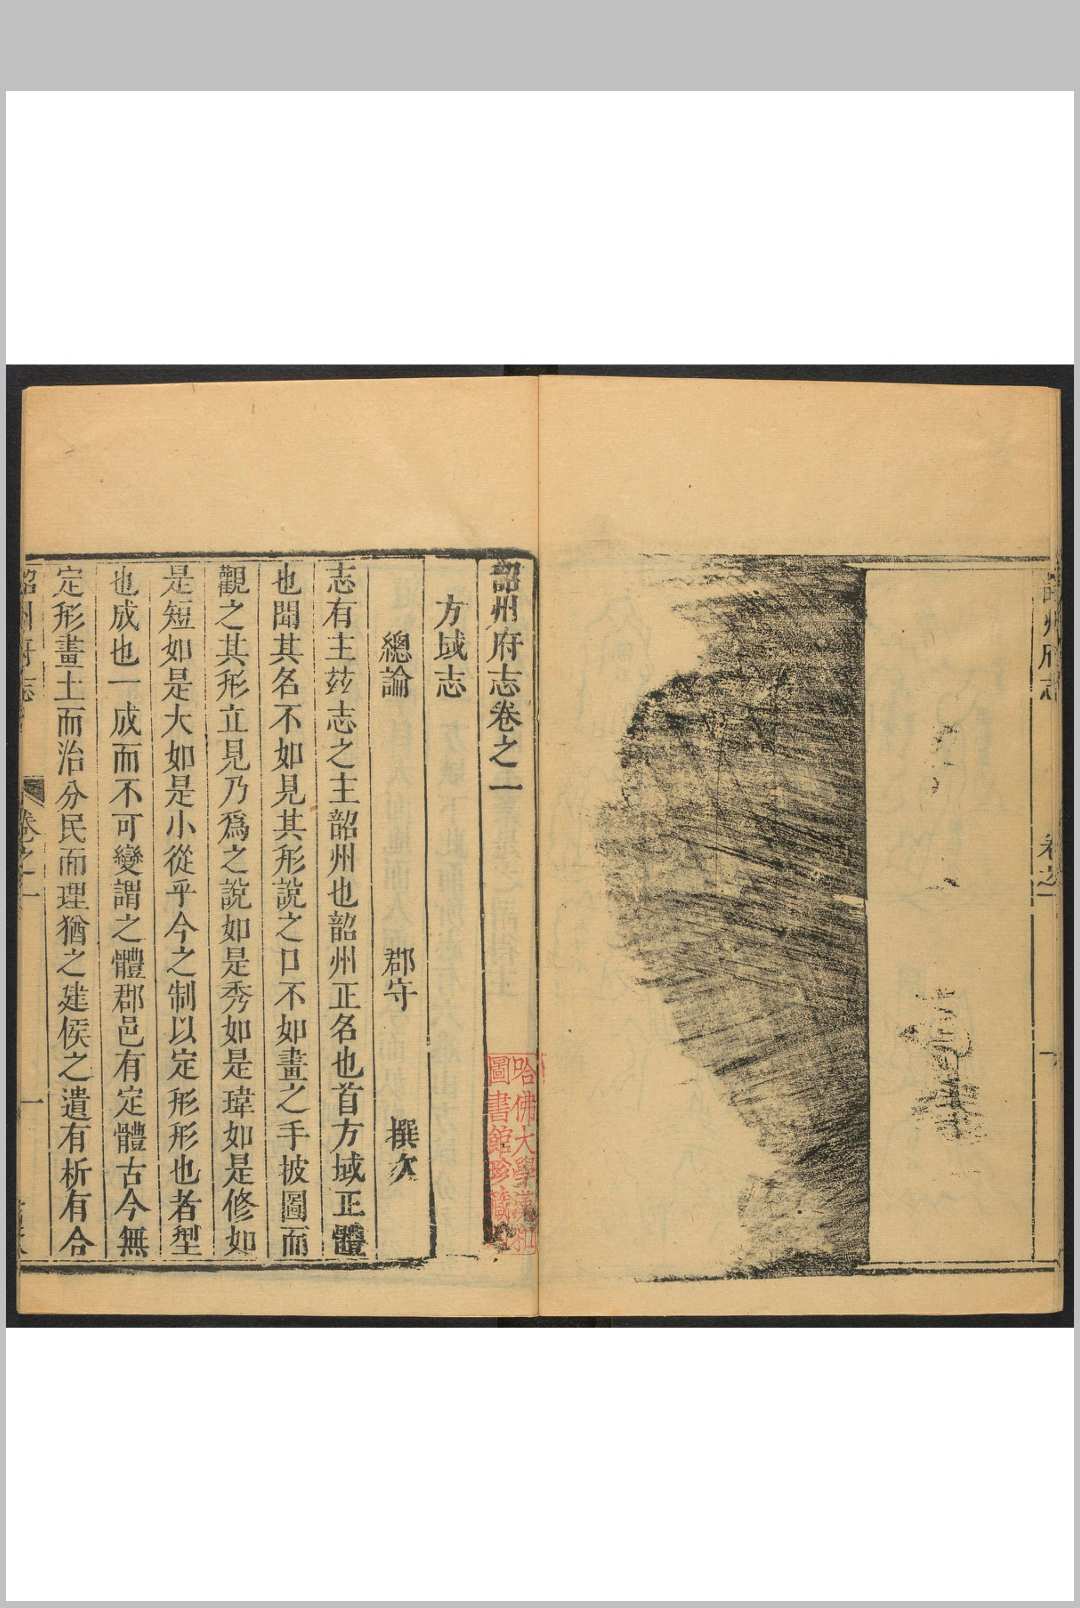 韶州府志
卷之一
韶州府志卷之二
方域志
總論
郡守
撰次
志有主茲志之主韶州也韶州正名也首方域正體
也聞其名不如見其形說之口不如畫之手披圖而
觀之其形立見乃爲之說如是秀如是瑋如是修如
是短如是大如是小從乎今之制以定形形也者型
也成也一成而不可變謂之體郡邑有定體古今無
定形畫土而治分民而理猶之建侯之遺有析有合
韶州府志
卷之二
一
哈佛大學漢和
圖書館珍藏